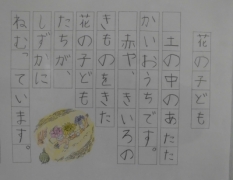 花の子ども
土の中のあたた
かいおうちです。
赤や、きいろの
きものをきた
花の子ども
たちが、
しずかに
ねむっています。